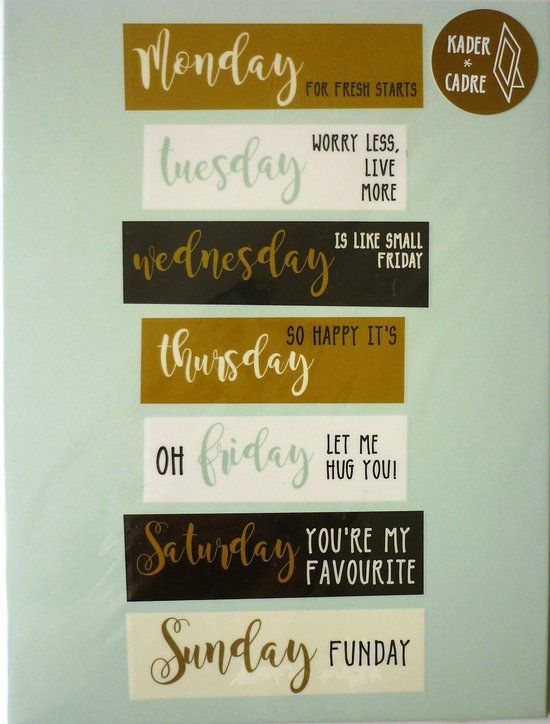 Monday
FOR FRESH STARTS
KADER
*
CADRE
tuesday
WORRY LESS,
LIVE
MORE
wednesday
IS LIKE SMALL
FRIDAY
SO HAPPY IT'S
thursday
OH friday
LET ME
HUG YOU!
Saturday
YOU'RE MY
FAVOURITE
Sunday FUNDAY